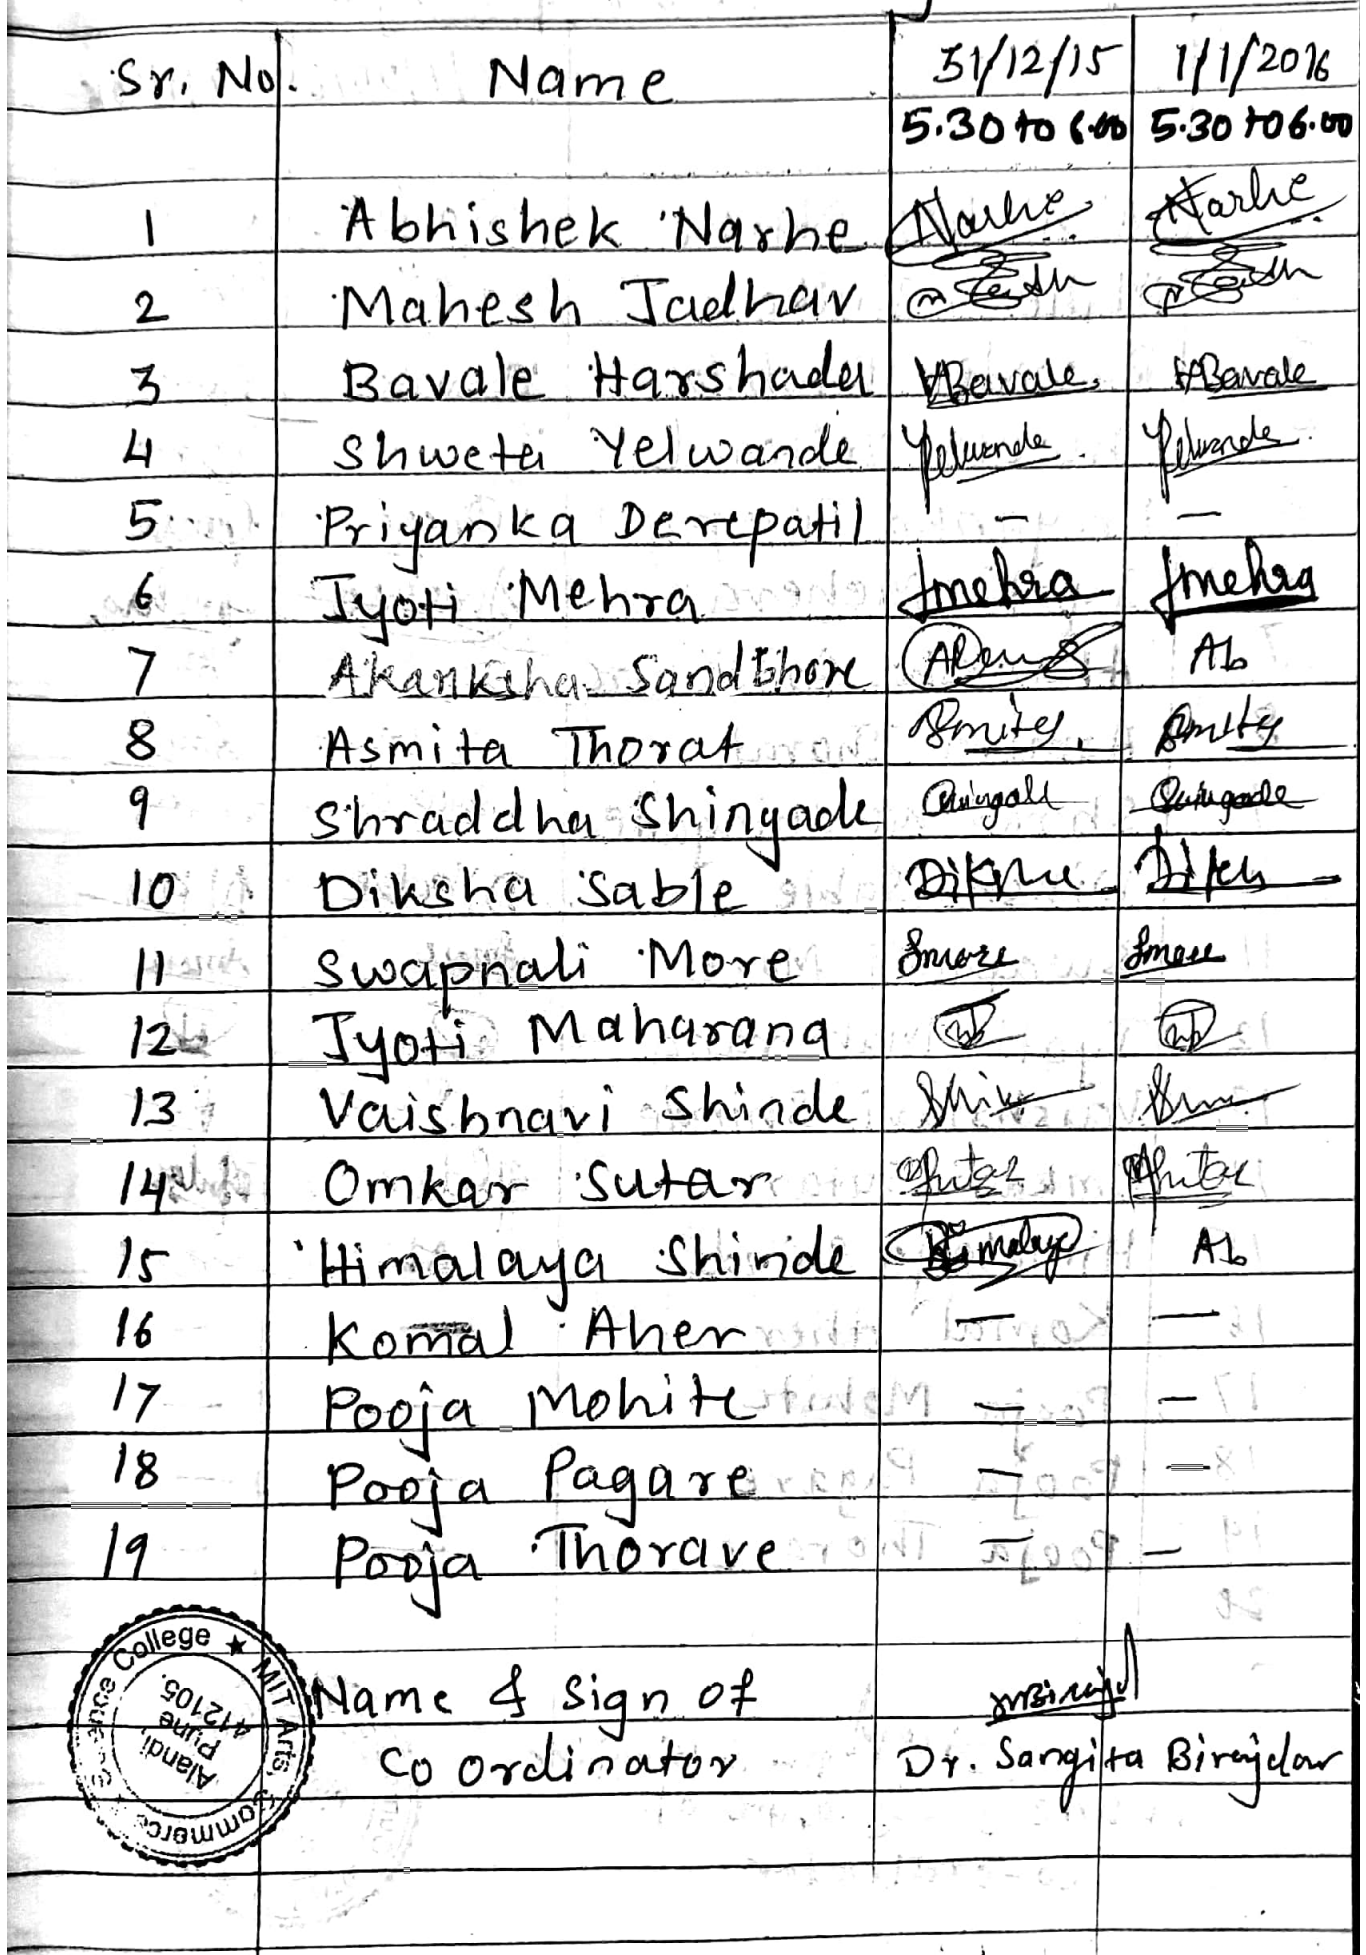 Sr. No. Name 31/12/15 1/1/2016
5.30 to 6.00 5.30 to 6.00
1 Abhishek Narhe Narhe Narhe
2 Mahesh Jadhav
3 Bavale Harshada HBavale HBavale
4 Shweta Yelwande Yelwande Yelwande
5 Priyanka Derepatil — —
6 Jyoti Mehra Jmehra Jmehra
7 Akanksha Sandbhore Ab
8 Asmita Thorat Smita Smita
9 Shraddha Shingade
10 Diksha Sable
11 Swapnali More Smore Smore
12 Jyoti Maharana
13 Vaishnavi Shinde
14 Omkar Sutar
15 Himalaya Shinde Himalaya Ab
16 Komal Aher — —
17 Pooja Mohite — —
18 Pooja Pagare — —
19 Pooja Thorave — —
Name & Sign of
Coordinator Dr. Sangita Birajdar
MIT Arts, Commerce & Science College ★
Alandi,
Pune
412105.